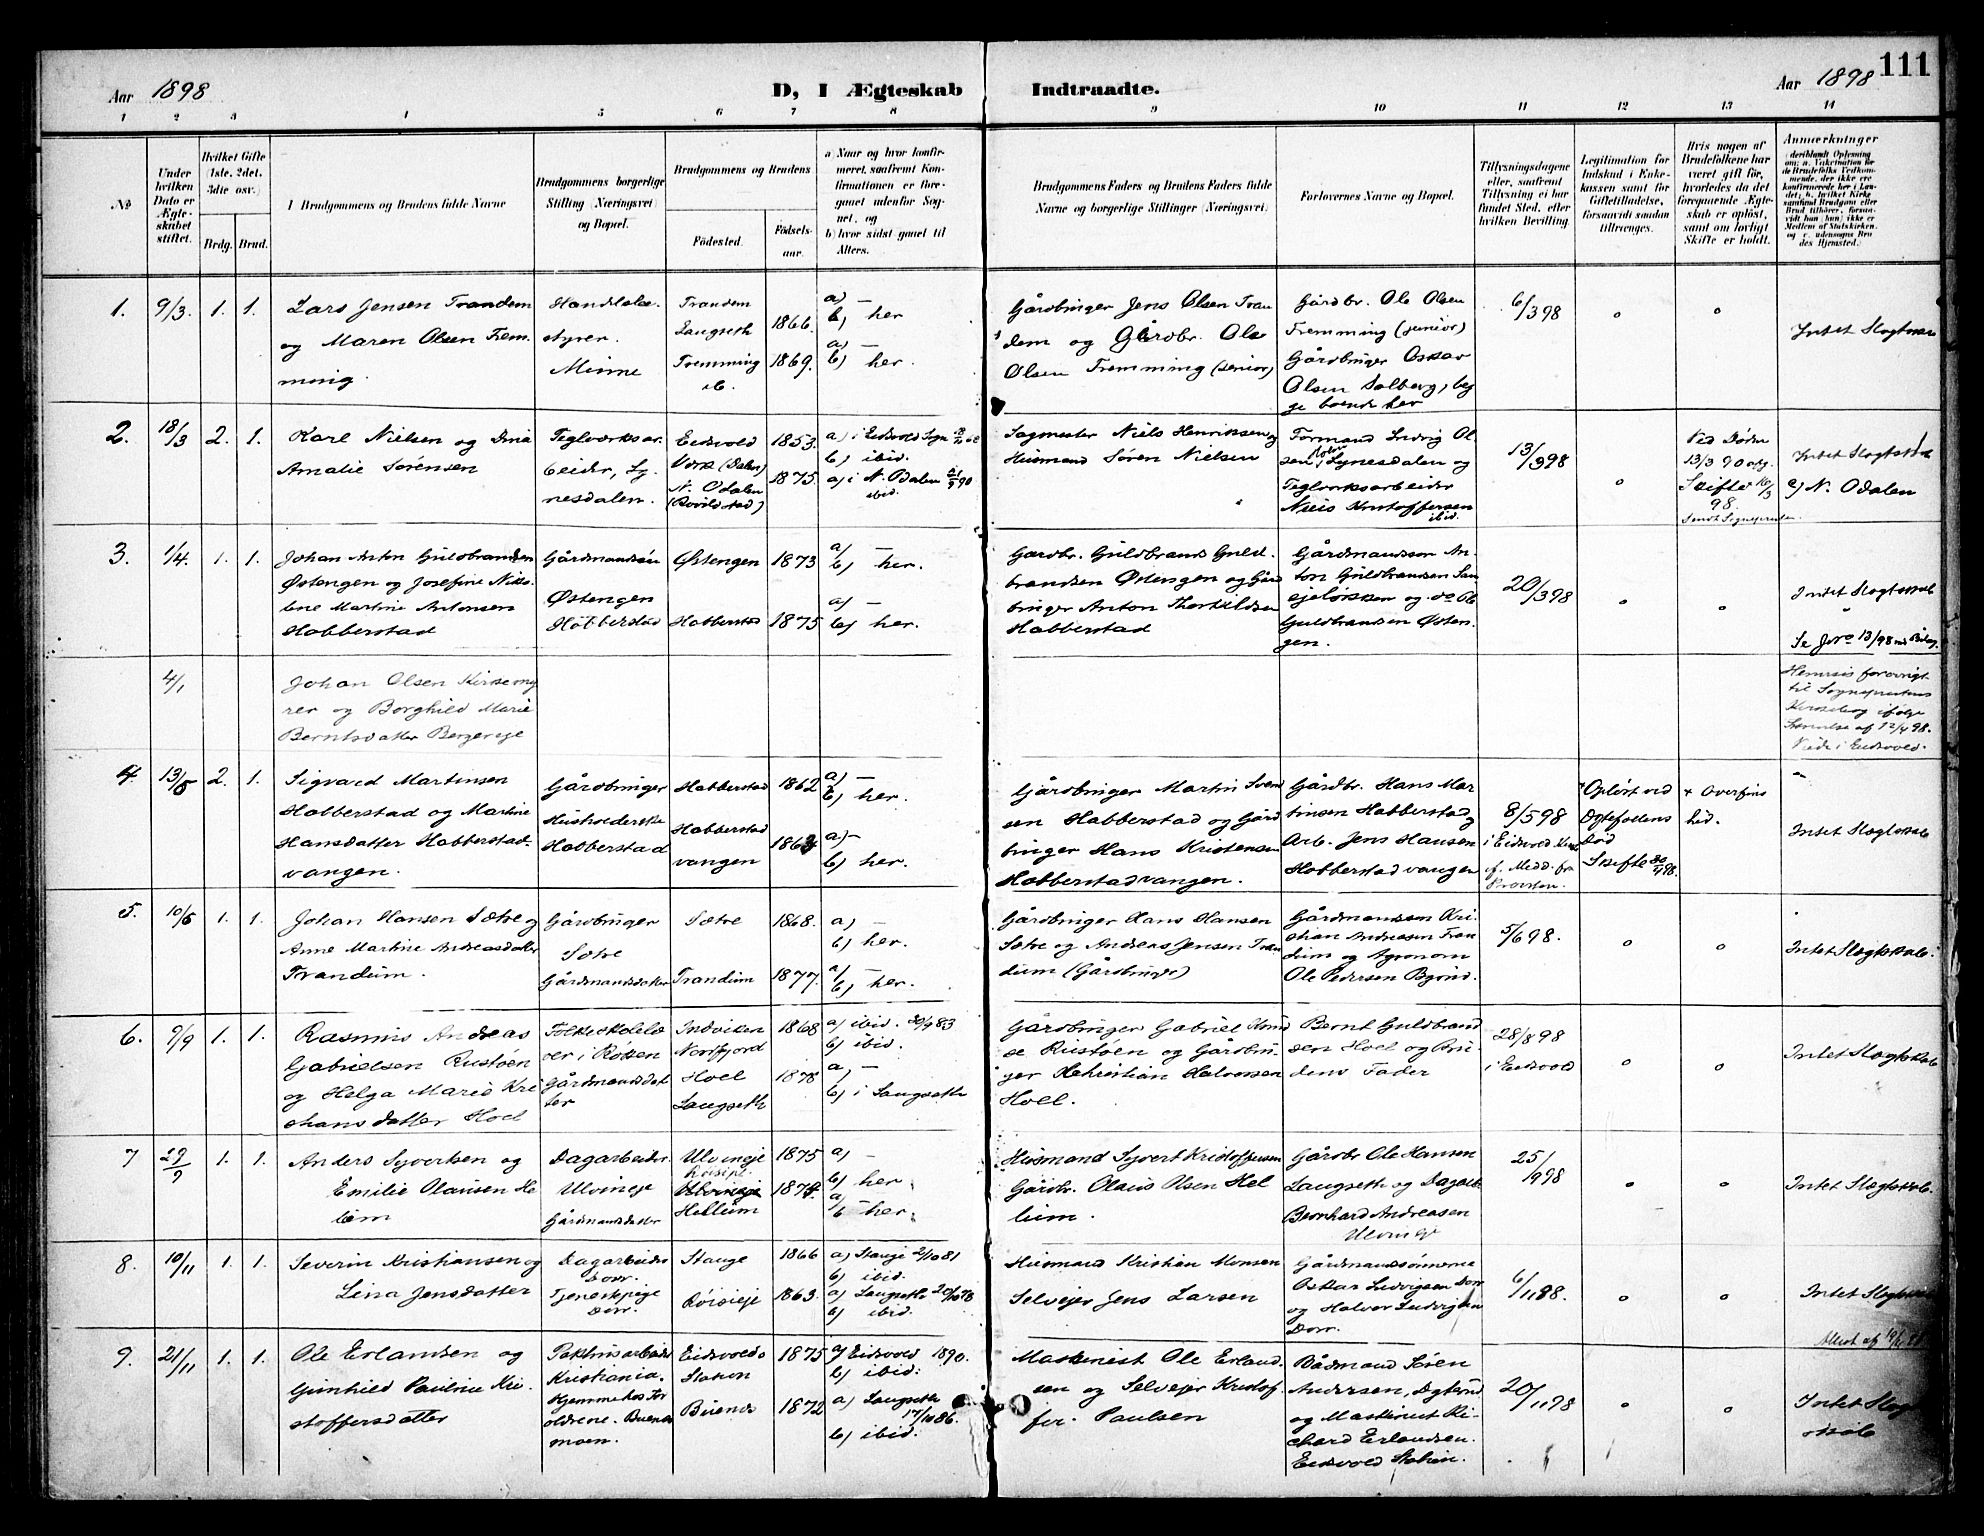 111
Aar 1898
D, I Ægteskab Indtraadte.
Aar 1898
1 2 3 4 5 6 7 8 9 10 11 12 13 14
No.
Under hvilken Dato er Ægteskabet stiftet.
Hvilket Gifte (1ste, 2det, 3die osv.)
Brdg. Brud.
Brudgommens og Brudens fulde Navne
Brudgommens borgerlige Stilling (Næringsvei) og Bopæl.
Brudgommens og Brudens
Fødested. Fødselsaar.
a) Naar og hvor konfirmeret, saafremt Konfirmationen er foregaaet udenfor Sognet, og
b) hvor sidst gaaet til Alters.
Brudgommens Faders og Brudens Faders fulde Navne og borgerlige Stillinger (Næringsvei)
Forlovernes Navne og Bopæl.
Tillysningsdagene eller, saafremt Tillysning ei har fundet Sted, efter hvilken Bevilling.
Legitimation for Indskud i Enkekassen samt for Giftetilladelse, forsaavidt saadan tiltrænges.
Hvis nogen af Brudefolkene har været gift før, hvorledes da det foregaaende Ægteskab er opløst, samt om lovligt Skifte er holdt.
Anmærkninger
1. 9/3. 1. 1.
Lars Jensen Trandem
og Maren Olsen Fremming.
Handelsbestyrer.
Minne
Trandem
Langseth
Fremming
ib.
1866.
1869.
a) —
b) her
a) —
b) her.
Gårdbruger Jens Olsen Trandem og Gårdbr. Ole
Olsen Fremming (senior)
Gårdbr. Ole Olsen
Fremming (junior)
Gårdbruger Oskar
Olsen Solberg, begge boende her
6/398
o
o
Intet Slægtskab
2. 18/3 2. 1.
Karl Nielsen og
Amalie Sørensen
Teglværksarbeider, Lynesdalen.
Eidsvold
Værk (Dalen)
N. Odalen
1853.
1875.
a) i Eidsvold
b) ibid.
a) i N. Odalen
ibid.
Sagmester Niels Henriksen og
Husmand Søren Nielsen
Formand Ludvig Olsen, Lynesdalen og
Teglværksarbeider
Niels Kristoffersen
ibid.
13/398
o
Ved Døden
13/3 90 og
Skifte
98.
Intet Slægtskab
c) N. Odalen
3. 1/4. 1. 1.
Johan Anton Guldbrandsen
Østengen og Josefine
Martine Antonsen
Habberstad
Gårdmandssøn
Østengen
Habberstad
Østengen
Habberstad
1873
1875
a) —
b) her.
a) —
b) her.
Gardbr. Guldbrand Guldbrandsen Østengen og Gårdbruger Anton Thorkildsen
Habberstad
Gårdmandssøn Anton Guldbrandsen
og do Ole
Guldbrandsen Østengen.
20/398
o
o
Intet Slægtskab
Se Jno 13/98
4/1
Johan Olsen Kirkemyrer og Borghild Marie
Berntsdatter Bergereje
Henvises forøvrigt
til Sogneprestens
Kirkebog ifølge
Skrivelse af 12/4 98.
Viede i Eidsvold.
4. 13/5 2. 1.
Sigvard Martinsen
Habberstad og Martine
Hansdatter Habberstadvangen.
Gårdbruger
Husholderske
Habberstad
Habberstad
Habberstadvangen
1862
1864
a) —
b) her.
a) —
b) her.
Gårdbruger Martin Svendsen Habberstad og Gårdbruger Hans Kristensen
Habberstadvangen.
Gårdbr. Hans Martinsen Habberstad og
Arb. Jens Hansen
Habberstadvangen
8/598
i Eidsvold Kirke
Opløst ved
Ægtefællens
Død
Skifte
Intet Slægtskab
5. 10/6 1. 1.
Johan Hansen Sætre og
Anne Martine Andreasdatter
Trandum.
Gårdbruger
Sætre
Gårdmandsdatter
Sætre
Trandum
1868.
1877.
a) —
b) her.
a) —
b) her.
Gårdbruger Hans Hansen
Sætre og Andreas Jensen Trandum (Gårdbruger)
Gårdmandssøn Kristian Andreasen Trandum og Agronom
Ole Pedersen
5/698.
o
o
Intet Slægtskab.
6. 9/9 1. 1.
Rasmus Andreas
Gabrielsen Rustøen
og Helga Marie Kristiansdatter Hoel
Folkeskolelærer i Røken
Gårdmandsdatter
Indviken
Nordfjord
Hoel
Langseth
1868
1878
a) ibid.
b) ibid.
a) —
b) i Langseth
Gårdbruger Gabriel
Rustøen og Gårdbruger Kristian Halvorsen
Hoel.
Bernt Guldbrandsen Hoel og Brudens Fader
28/898
i Eidsvold
o
o
Intet Slægtskab
7 29/9 1. 1.
Anders Syvertsen og
Emilie Olausen Helum
Dagarbeider
Ulvineje
Gårdmandsdatter
Ulvineje
Hellum
1875
1874.
a) —
b) her
a) —
b her.
Husmand Syvert Kristoffersen
Gårdbr. Olaus Olsen Hellum.
Gårdbr Ole Hansen
Langseth og Dagarb.
Bernhard Andreasen
25/998
o
o
Intet Slægtskab.
8. 10/11 1. 1.
Severin Kristiansen og
Lina Jensdatter
Dagarbeider
Dorr.
Tjenestepige
Dorr.
Stauge
1866
1863.
a) Stauge 2/1081
b) ibid.
a) Langseth 20/1078
b) ibid.
Husmand Kristian Monsen
Selveier Jens Larsen
Gårdmandssønnerne
Oskar Ludvigsen Dorr
og Halvor Ludvigsen
Dorr.
6/1198.
o
o
Intet Slægtskab
9. 21/11 1. 1.
Ole Erlandsen og
Gunhild Pauline Kristoffersdatter
Kristiania.
Hjemme hos Forældrene.
Eidsvolds
Station
1875
1872
a) Eidsvold 1890.
b) ibid.
a) Langseth
17/1086.
b) ibid.
Maskinist Ole Erlandsen og Selveier Kristoffer Paulsen
Søren
Andersen,
og Maskinist Richard Erlandsen.
Eidsvold Station.
20/1198
o
o
Intet Slægtskab